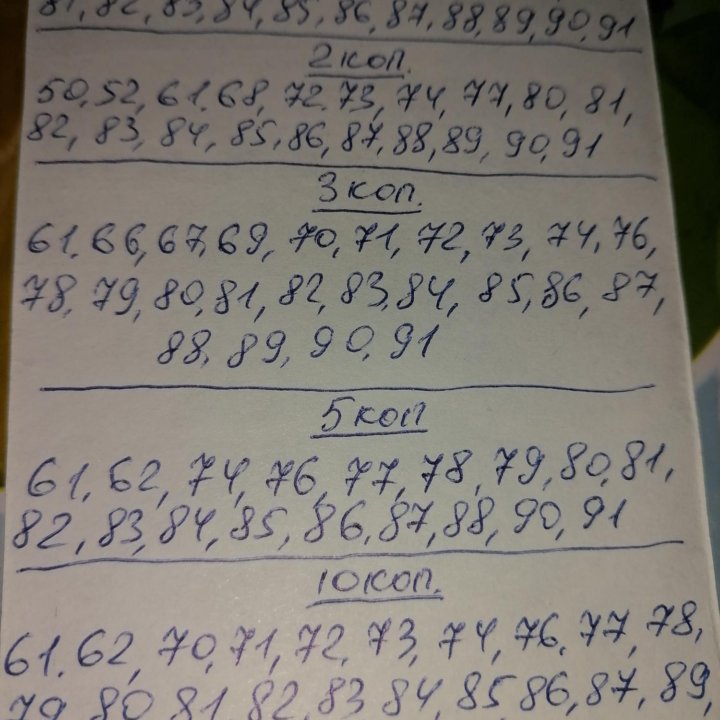 81, 82, 83, 84, 85, 86, 87, 88, 89, 90, 91
2 коп.
50, 52, 61, 68, 72, 73, 74, 77, 80, 81,
82, 83, 84, 85, 86, 87, 88, 89, 90, 91
3 коп.
61, 66, 67, 69, 70, 71, 72, 73, 74, 76,
78, 79, 80, 81, 82, 83, 84, 85, 86, 87,
88, 89, 90, 91
5 коп
61, 62, 74, 76, 77, 78, 79, 80, 81,
82, 83, 84, 85, 86, 87, 88, 90, 91
10 коп.
61, 62, 70, 71, 72, 73, 74, 76, 77, 78,
79, 80, 81, 82, 83, 84, 85, 86, 87, 89,